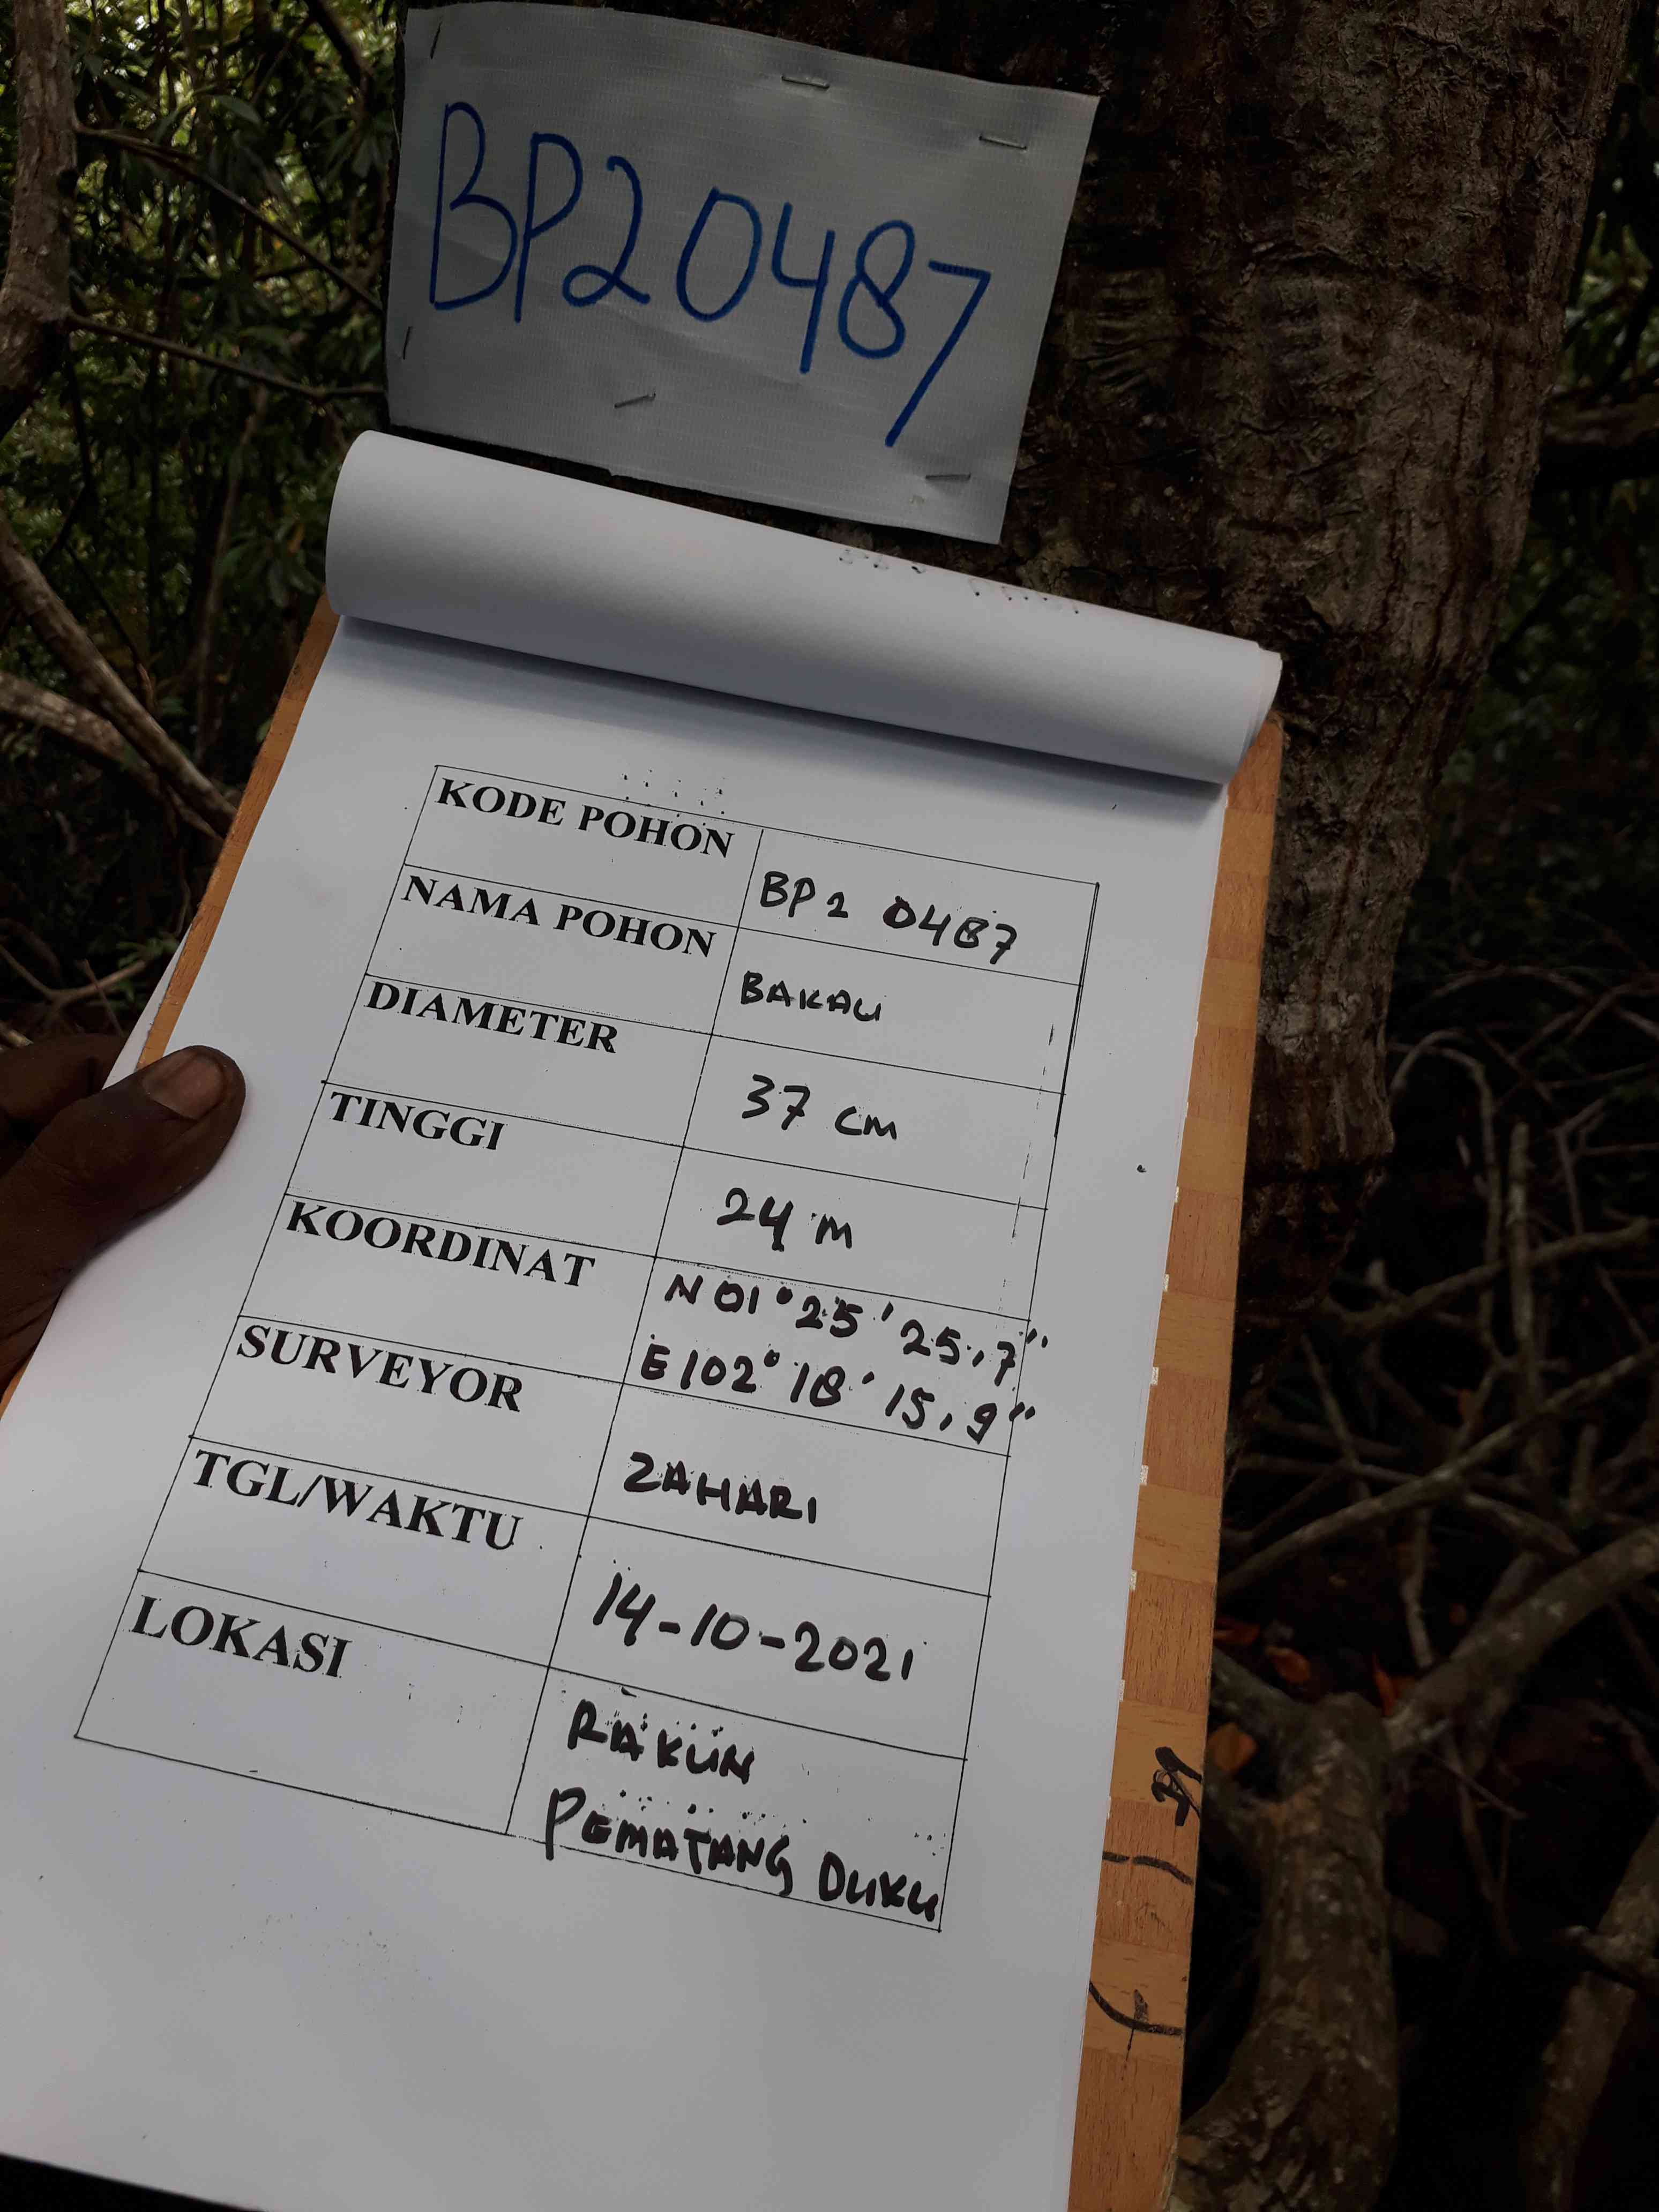 BP20487
KODE POHON BP2 0487
NAMA POHON BAKAU
DIAMETER 37 cm
TINGGI 24 m
KOORDINAT N 01° 25' 25,7"
E 102° 18' 15,9"
SURVEYOR ZAHARI
TGL/WAKTU 14-10-2021
LOKASI RAKUN
PEMATANG DUKU